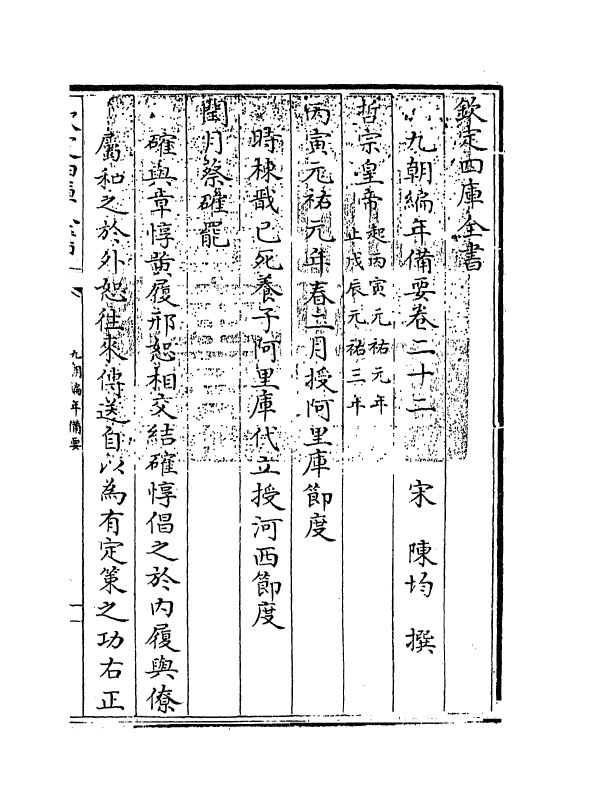 欽定四庫全書
九朝編年備要卷二十二 宋 陳均 撰
哲宗皇帝 起丙寅元祐元年
止戊辰元祐三年
丙寅元祐元年春二月授阿里庫節度
時棟戩已死養子阿里庫代立授河西節度
閏月蔡確罷
確與章惇黄履邢恕相交結確惇倡之於内履與僚
屬和之於外恕往來傳送自以為有定策之功右正
九朝編年備要
一